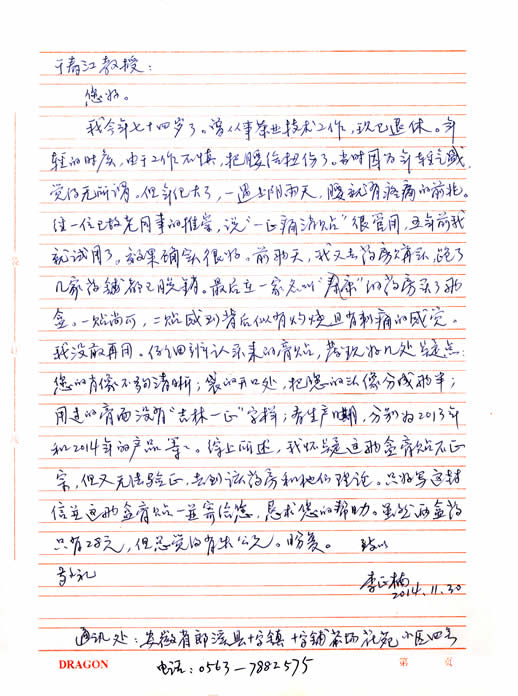 于春江教授：
您好。
我今年七十四岁了。曾从事茶业技术工作，现已退休。年
轻的时候，由于工作不慎，把腰给扭伤了。当时因为年轻气盛
觉得无所谓。但年纪大了，一遇上阴雨天，腰就有疼痛的前兆。
经一位已故老同事的推荐，说“一正痛消贴”很管用，五年前我
就试用了，效果确实很好。前两天，我又去药房购买，跑了
几家药铺都已脱销。最后在一家名叫“康”的药房买了两
盒。一贴尚可，二贴感到背后似有灼烧且有刺痛的感觉。
我没敢再用。仔细辨认买来的膏贴，发现好几处疑点：
您的肖像不够清晰；袋的开口处，把您的头像分成两半；
用过的膏面没有“吉林一正”字样；看生产日期，分别为2013年
和2014年的产品等等。综上所述，我怀疑这两盒膏贴不正
宗，但又无法验证，去到该药房和他们理论。只好写这封
信并这两盒膏贴一并寄给您，恳求您的帮助。虽然两盒药
只有28元，但总觉得有失公允。盼复。 致以
敬礼
李正楠
2014.11.30
通讯处：安徽省郎溪县十字镇 十字铺茶场花苑小区四号
DRAGON 第 页
电话：0563-7882575